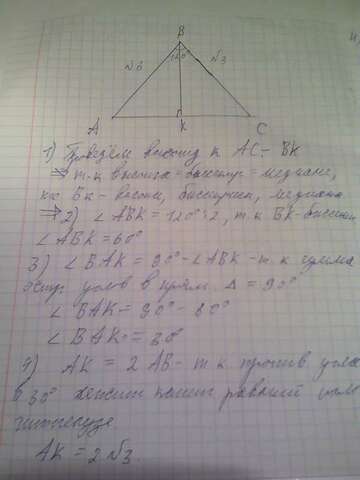 B
√3 120° √3
A K C
1) Проведём высоту к AC - BK
⇒ т.к высота = биссектр = медиане,
то BK - высота, биссектриса, медиана
⇒ 2) ∠ABK = 120°:2, т.к BK - биссект
∠ABK = 60°
3) ∠BAK = 90° - ∠ABK - т.к сумма
остр. углов в прям. Δ = 90°
∠BAK = 90° - 60°
∠BAK = 30°
4) AK = 2 AB - т.к против угла
в 30° лежит катет равный
гипотенузе.
AK = 2√3.